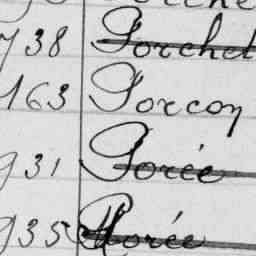 738 Porchet
163 Porcon
931 Porée
935 Morée